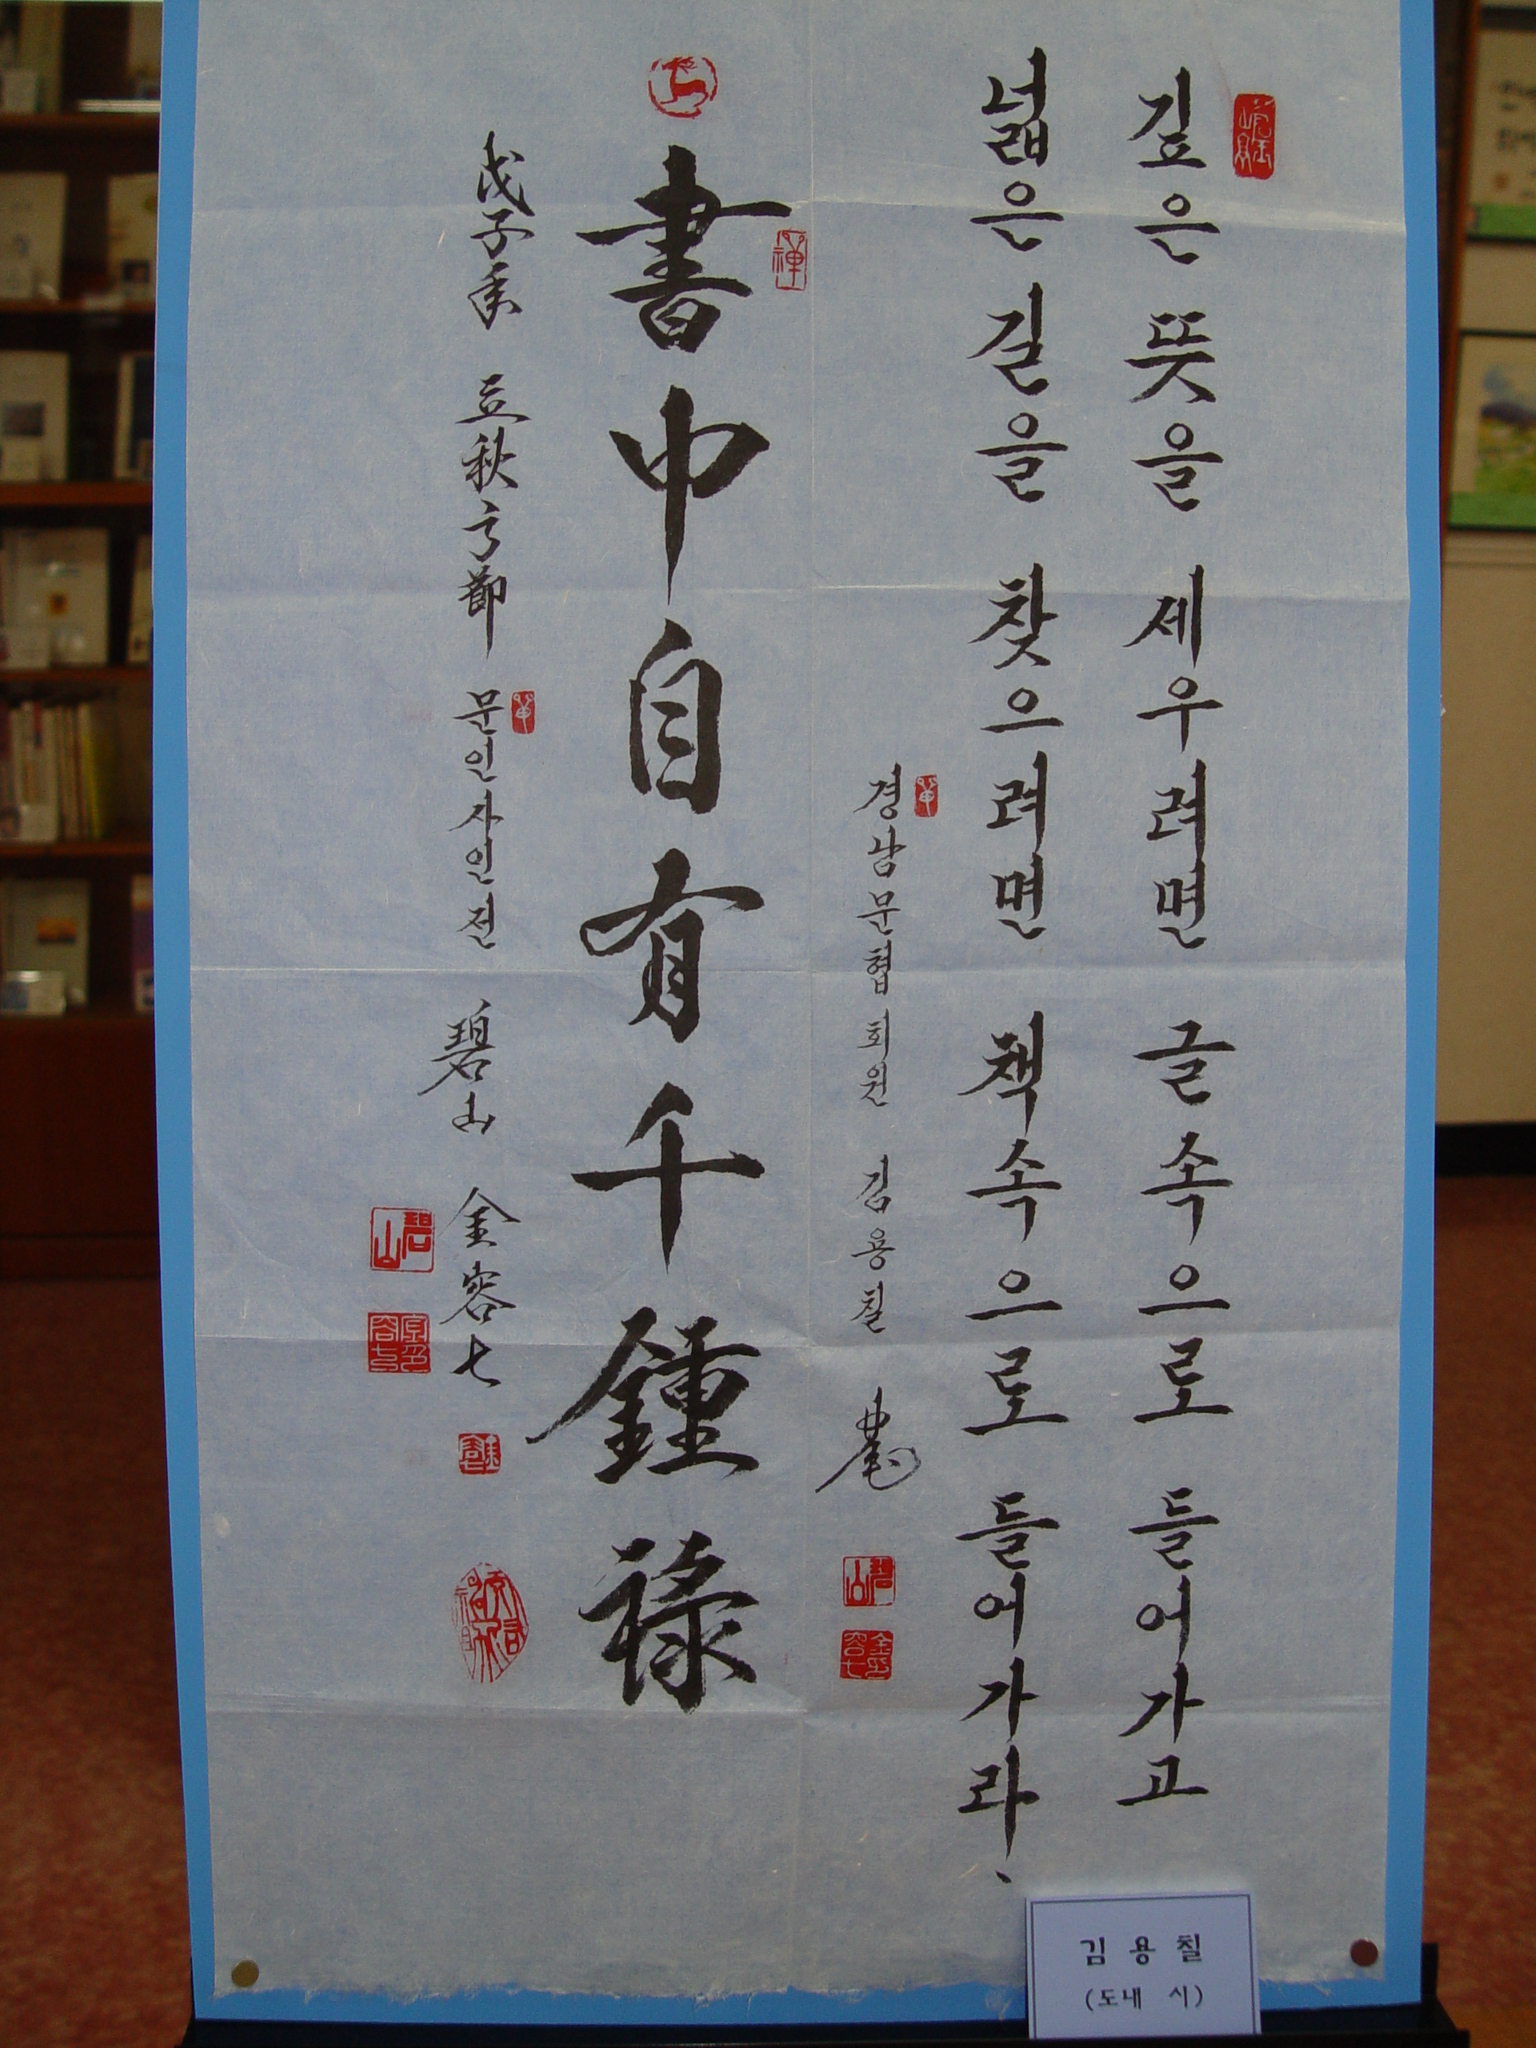 깊은 뜻을 세우려면 글 속으로 들어가고
넓은 길을 찾으려면 책 속으로 들어가라.
경남문협 회원 김용칠
書中自有千鍾祿
戊子年 立秋之節 문인사인전 碧山 金容七
碧山
碧山
김 용 칠
(도내 시)